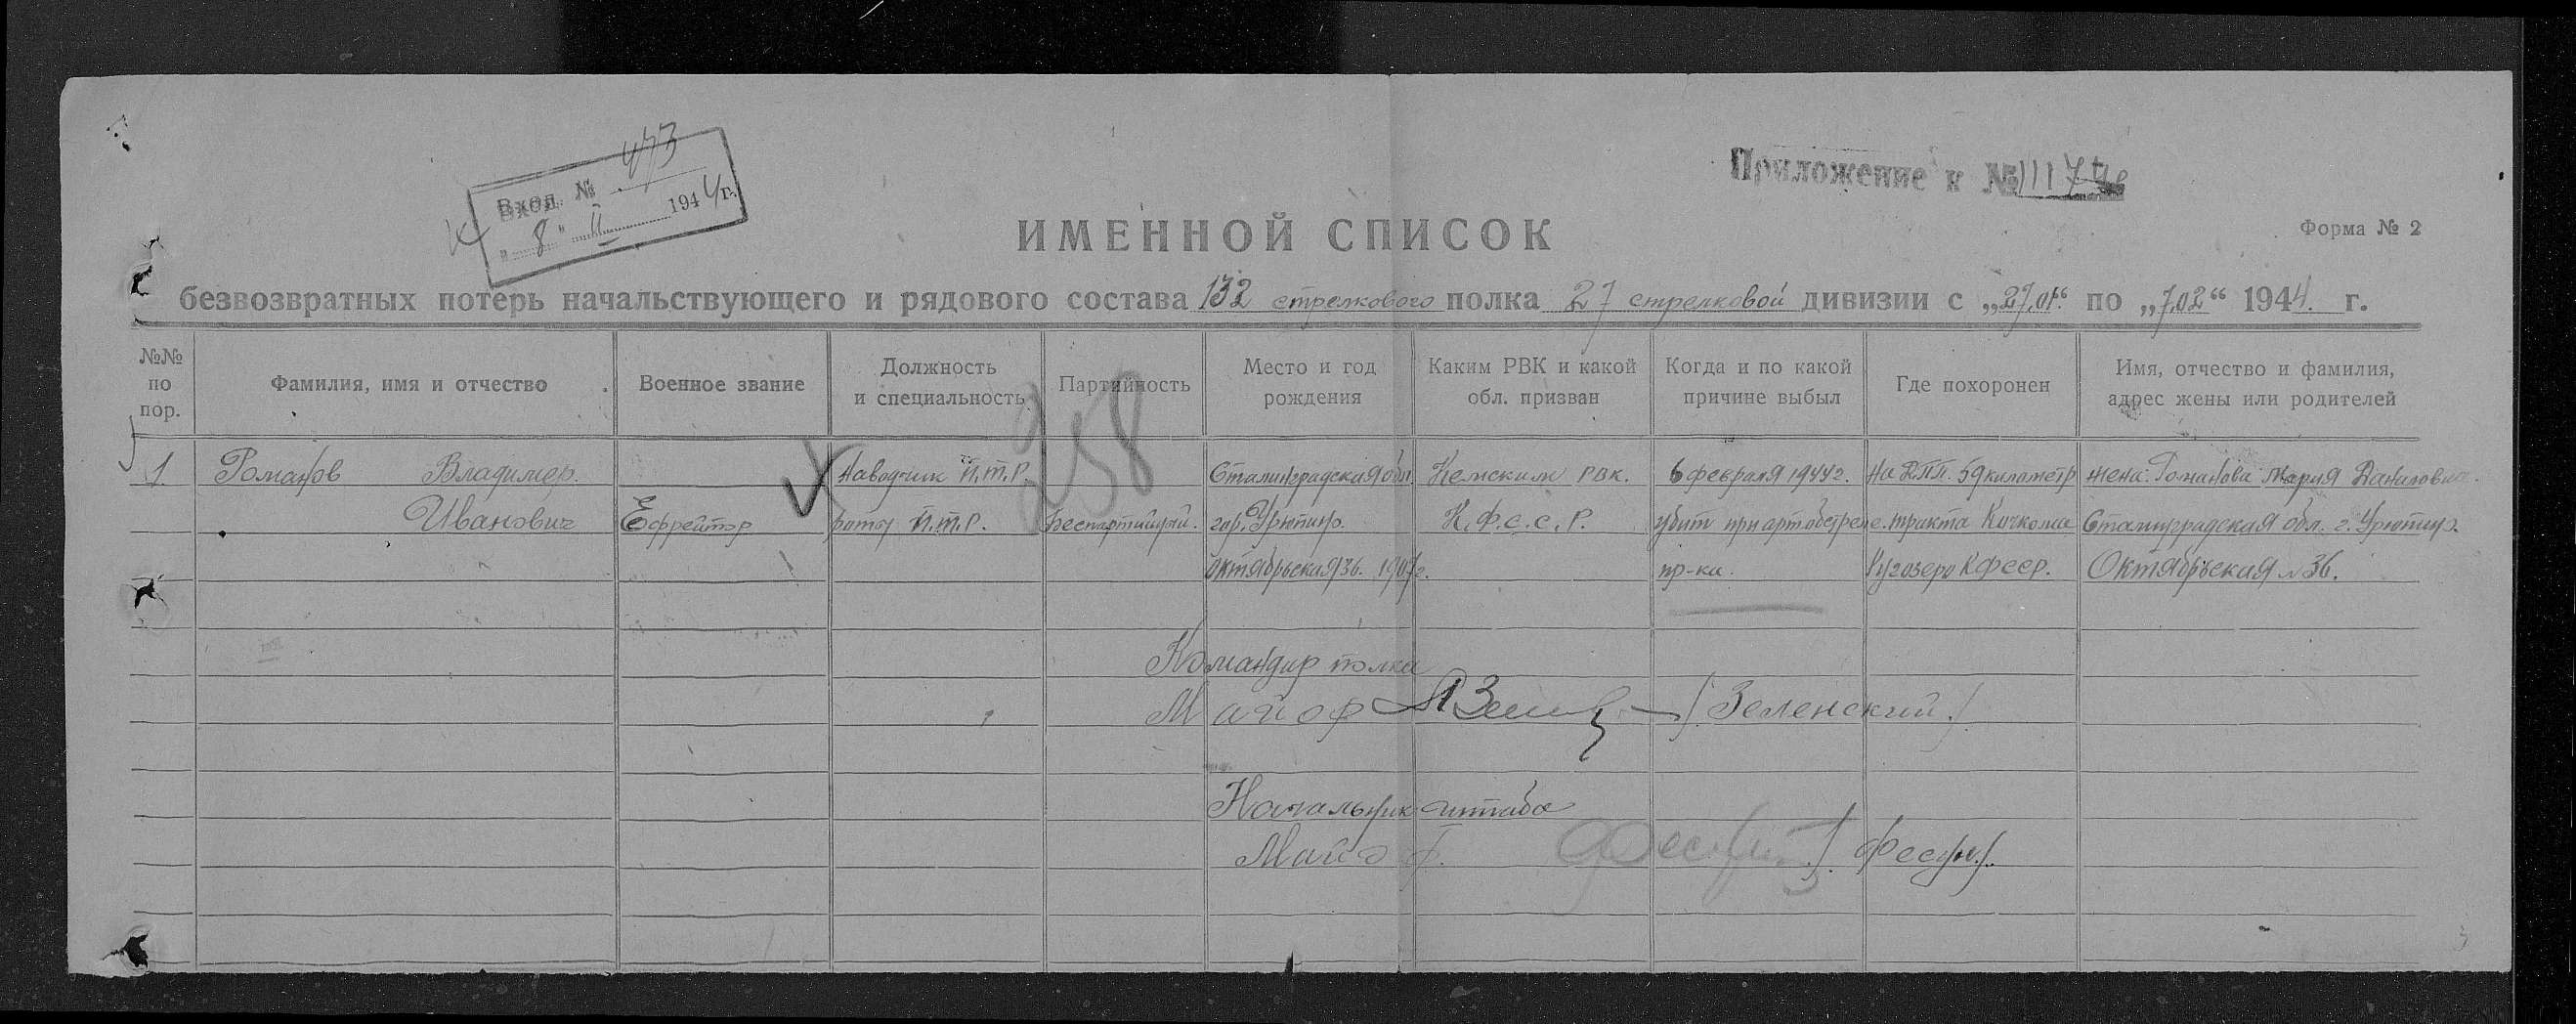 Вход. № 473
"8" II 1944 г.
Приложение к №
ИМЕННОЙ СПИСОК
Форма № 2
безвозвратных потерь начальствующего и рядового состава 132 стрелкового полка 27 стрелковой дивизии с „27.01“ по „7.02“ 1944 г.
№№ по пор.
Фамилия, имя и отчество
Военное звание
Должность и специальность
Партийность
Место и год рождения
Каким РВК и какой обл. призван
Когда и по какой причине выбыл
Где похоронен
Имя, отчество и фамилия, адрес жены или родителей
258
1 Романов Владимир Наводчик П.Т.Р. Сталинградская обл. Кемским РВК. 6 февраля 1944г. На 59 километр жена: Романова Мария Даниловна.
Иванович Ефрейтор роты П.Т.Р. беспартийный. гор. Урюпино. К.Ф.С.С.Р. убит при артобстреле тракта Кочкома Сталинградская обл. г. Урюпино.
Октябрьская 36. пр-ка. Ругозеро КФССР. Октябрьская №36.
Командир полка
Майор /Зеленский/
Начальник штаба
Майор